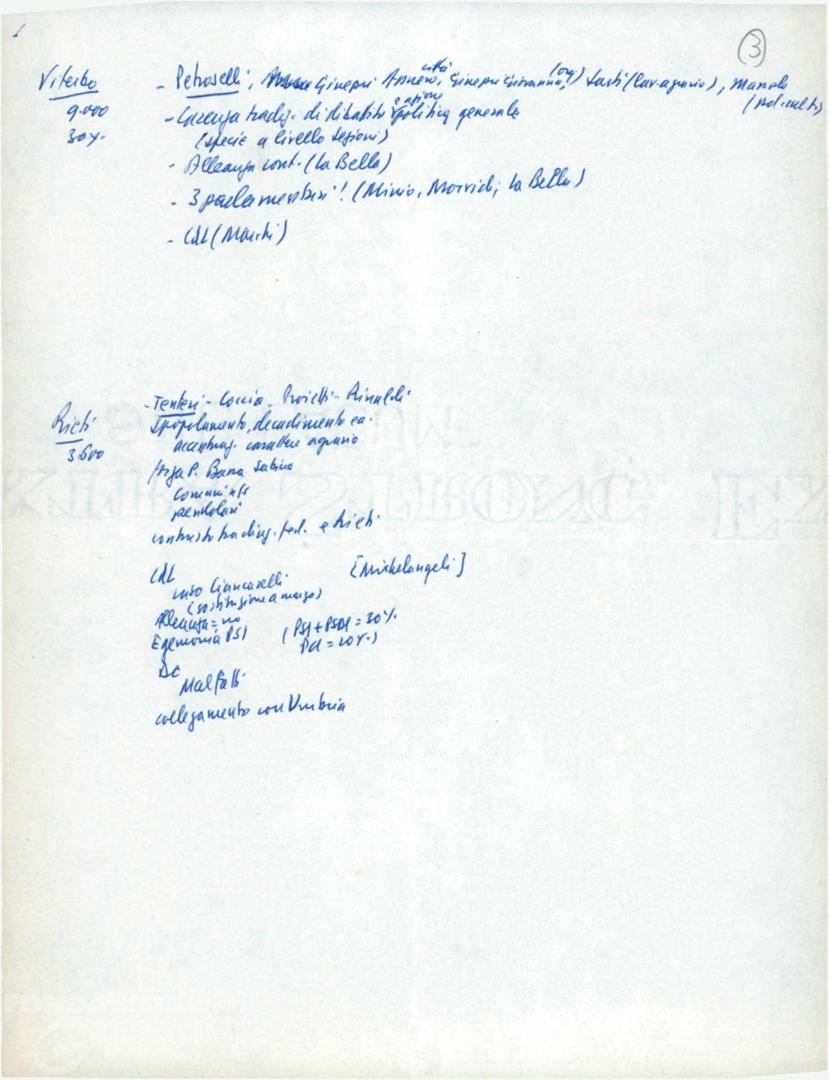 3
Viterbo - Petroselli, Ginepri città Ginepri (org) Sarti (lav. agrario),
9.000 - Carenza tradiz. di dibattito e azione politica generale
30%. (specie a livello sezioni)
- Alleanza cont. (La Bella)
- 3 parlamentari! (Minio, Morvidi, La Bella)
- CdL
- Tenteri - Coccia - Proietti - Rinaldi
Rieti Spopolamento, decadimento ec.
3.600 accentuaz. carattere agrario
forza P. Bassa Sabina
Comunisti
pendolari
contrasto tradiz. fed. e Rieti
CdL [Michelangeli]
caso Ciancarelli
(sostituzione a marzo)
Alleanza = no
Egemonia PSI (PSI + PSDI = 30%.
PCI = 20%.)
DC
Malfatti
collegamento con Umbria